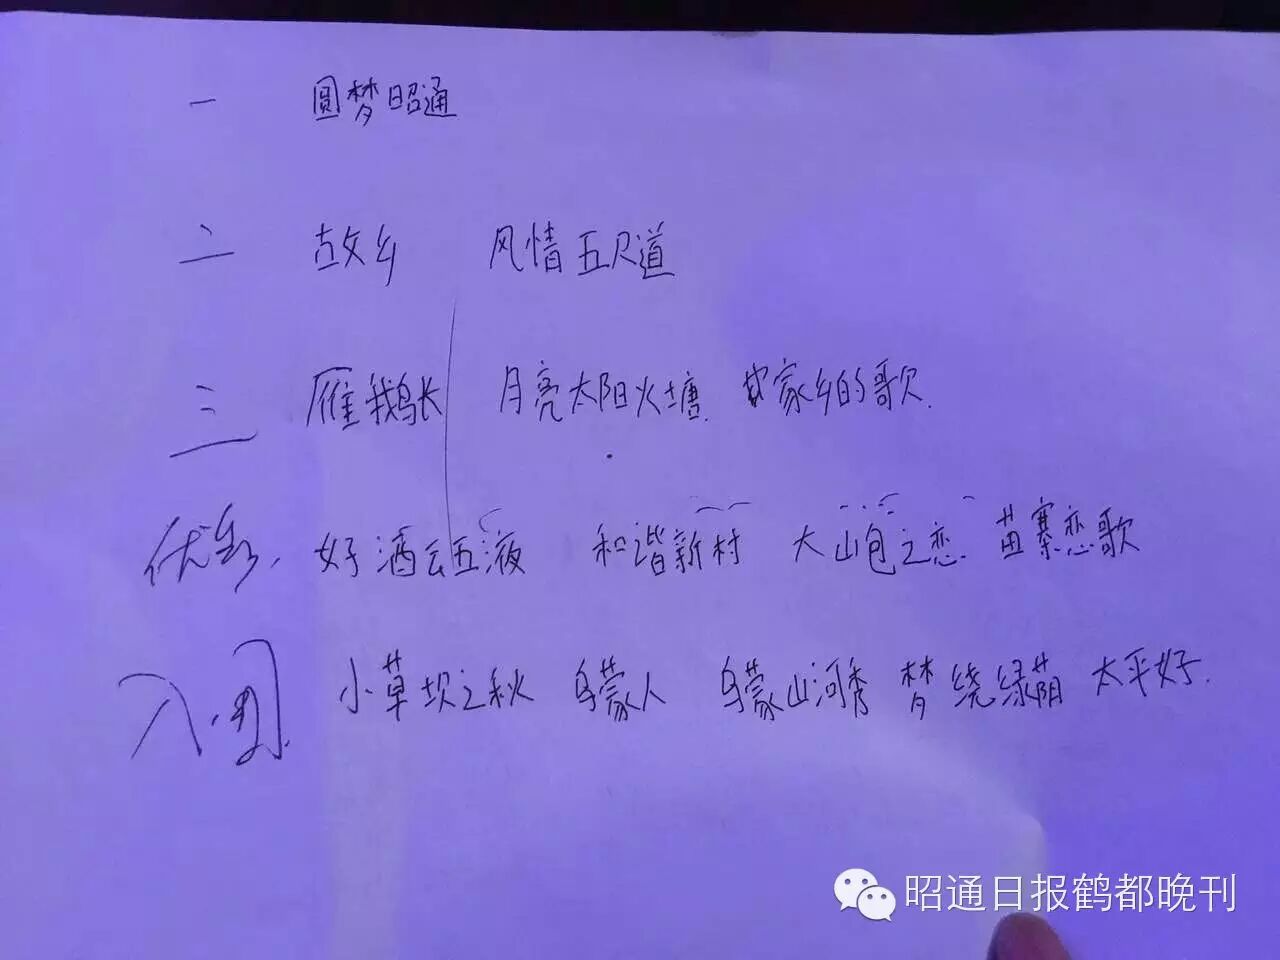 一 圆梦昭通
二 故乡 风情五尺道
三 雁鹅长 月亮太阳火塘 家乡的歌.
优秀. 好酒云五液 和谐新村 大山包之恋. 苗寨恋歌
入围. 小草坝之秋 乌蒙人 乌蒙山河秀 梦绕绿荫 太平好.
昭通日报鹤都晚刊